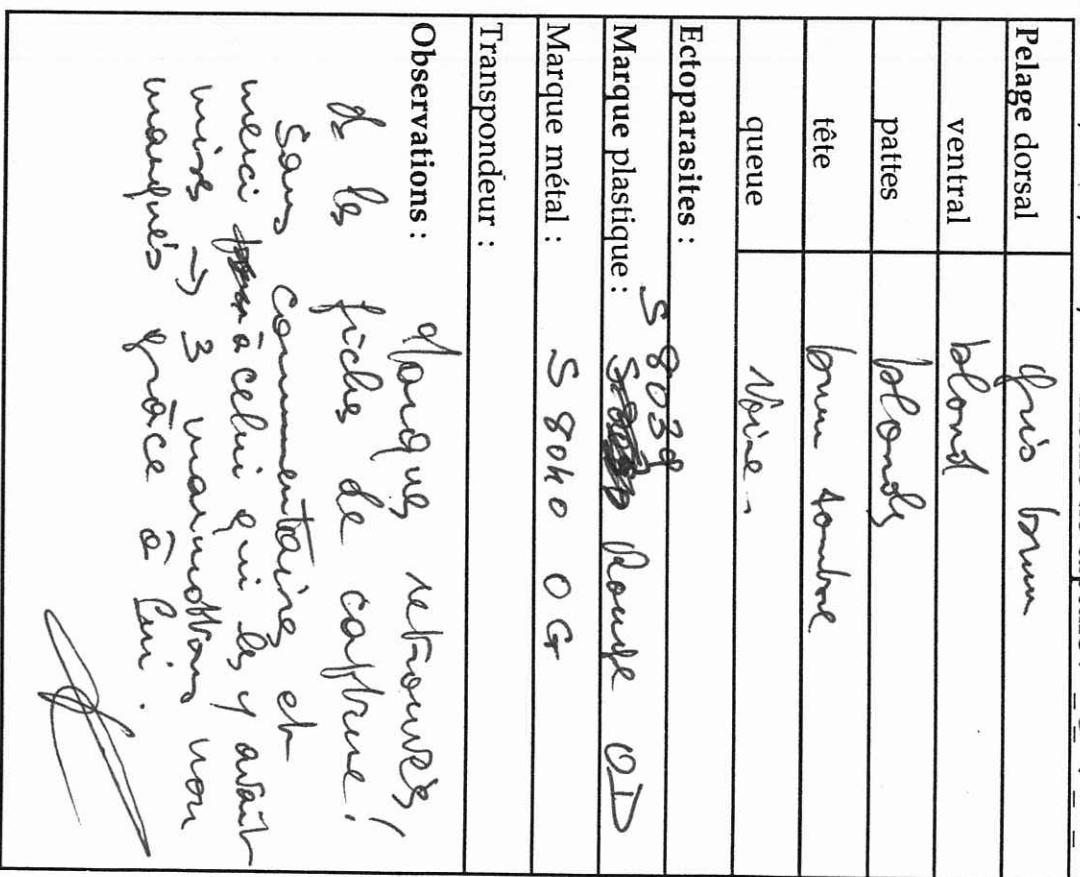 Pelage dorsal gris brun
ventral blond
pattes blonds
tête brun sombre
queue Noire
Ectoparasites :
Marque plastique : S 8039 Rouge OD
Marque métal : S 8040 OG
Transpondeur :
Observations : Marques retrouvés
les fiches de capture !
Sans commentaires et
merci à celui qui les y avait
mises → 3 marmottons non
marqués grâce à lui.